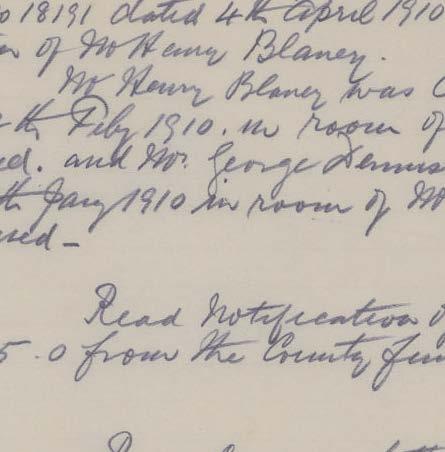 o 18191 dated 4th April 1910
of Mr Henry Blaney.
Mr Henry Blaney was
th Feby 1910. in room of
ed. and Mr. George Dennis
th Jany 1910 in room of Mr
sed –
Read Notification
5.0 from the County